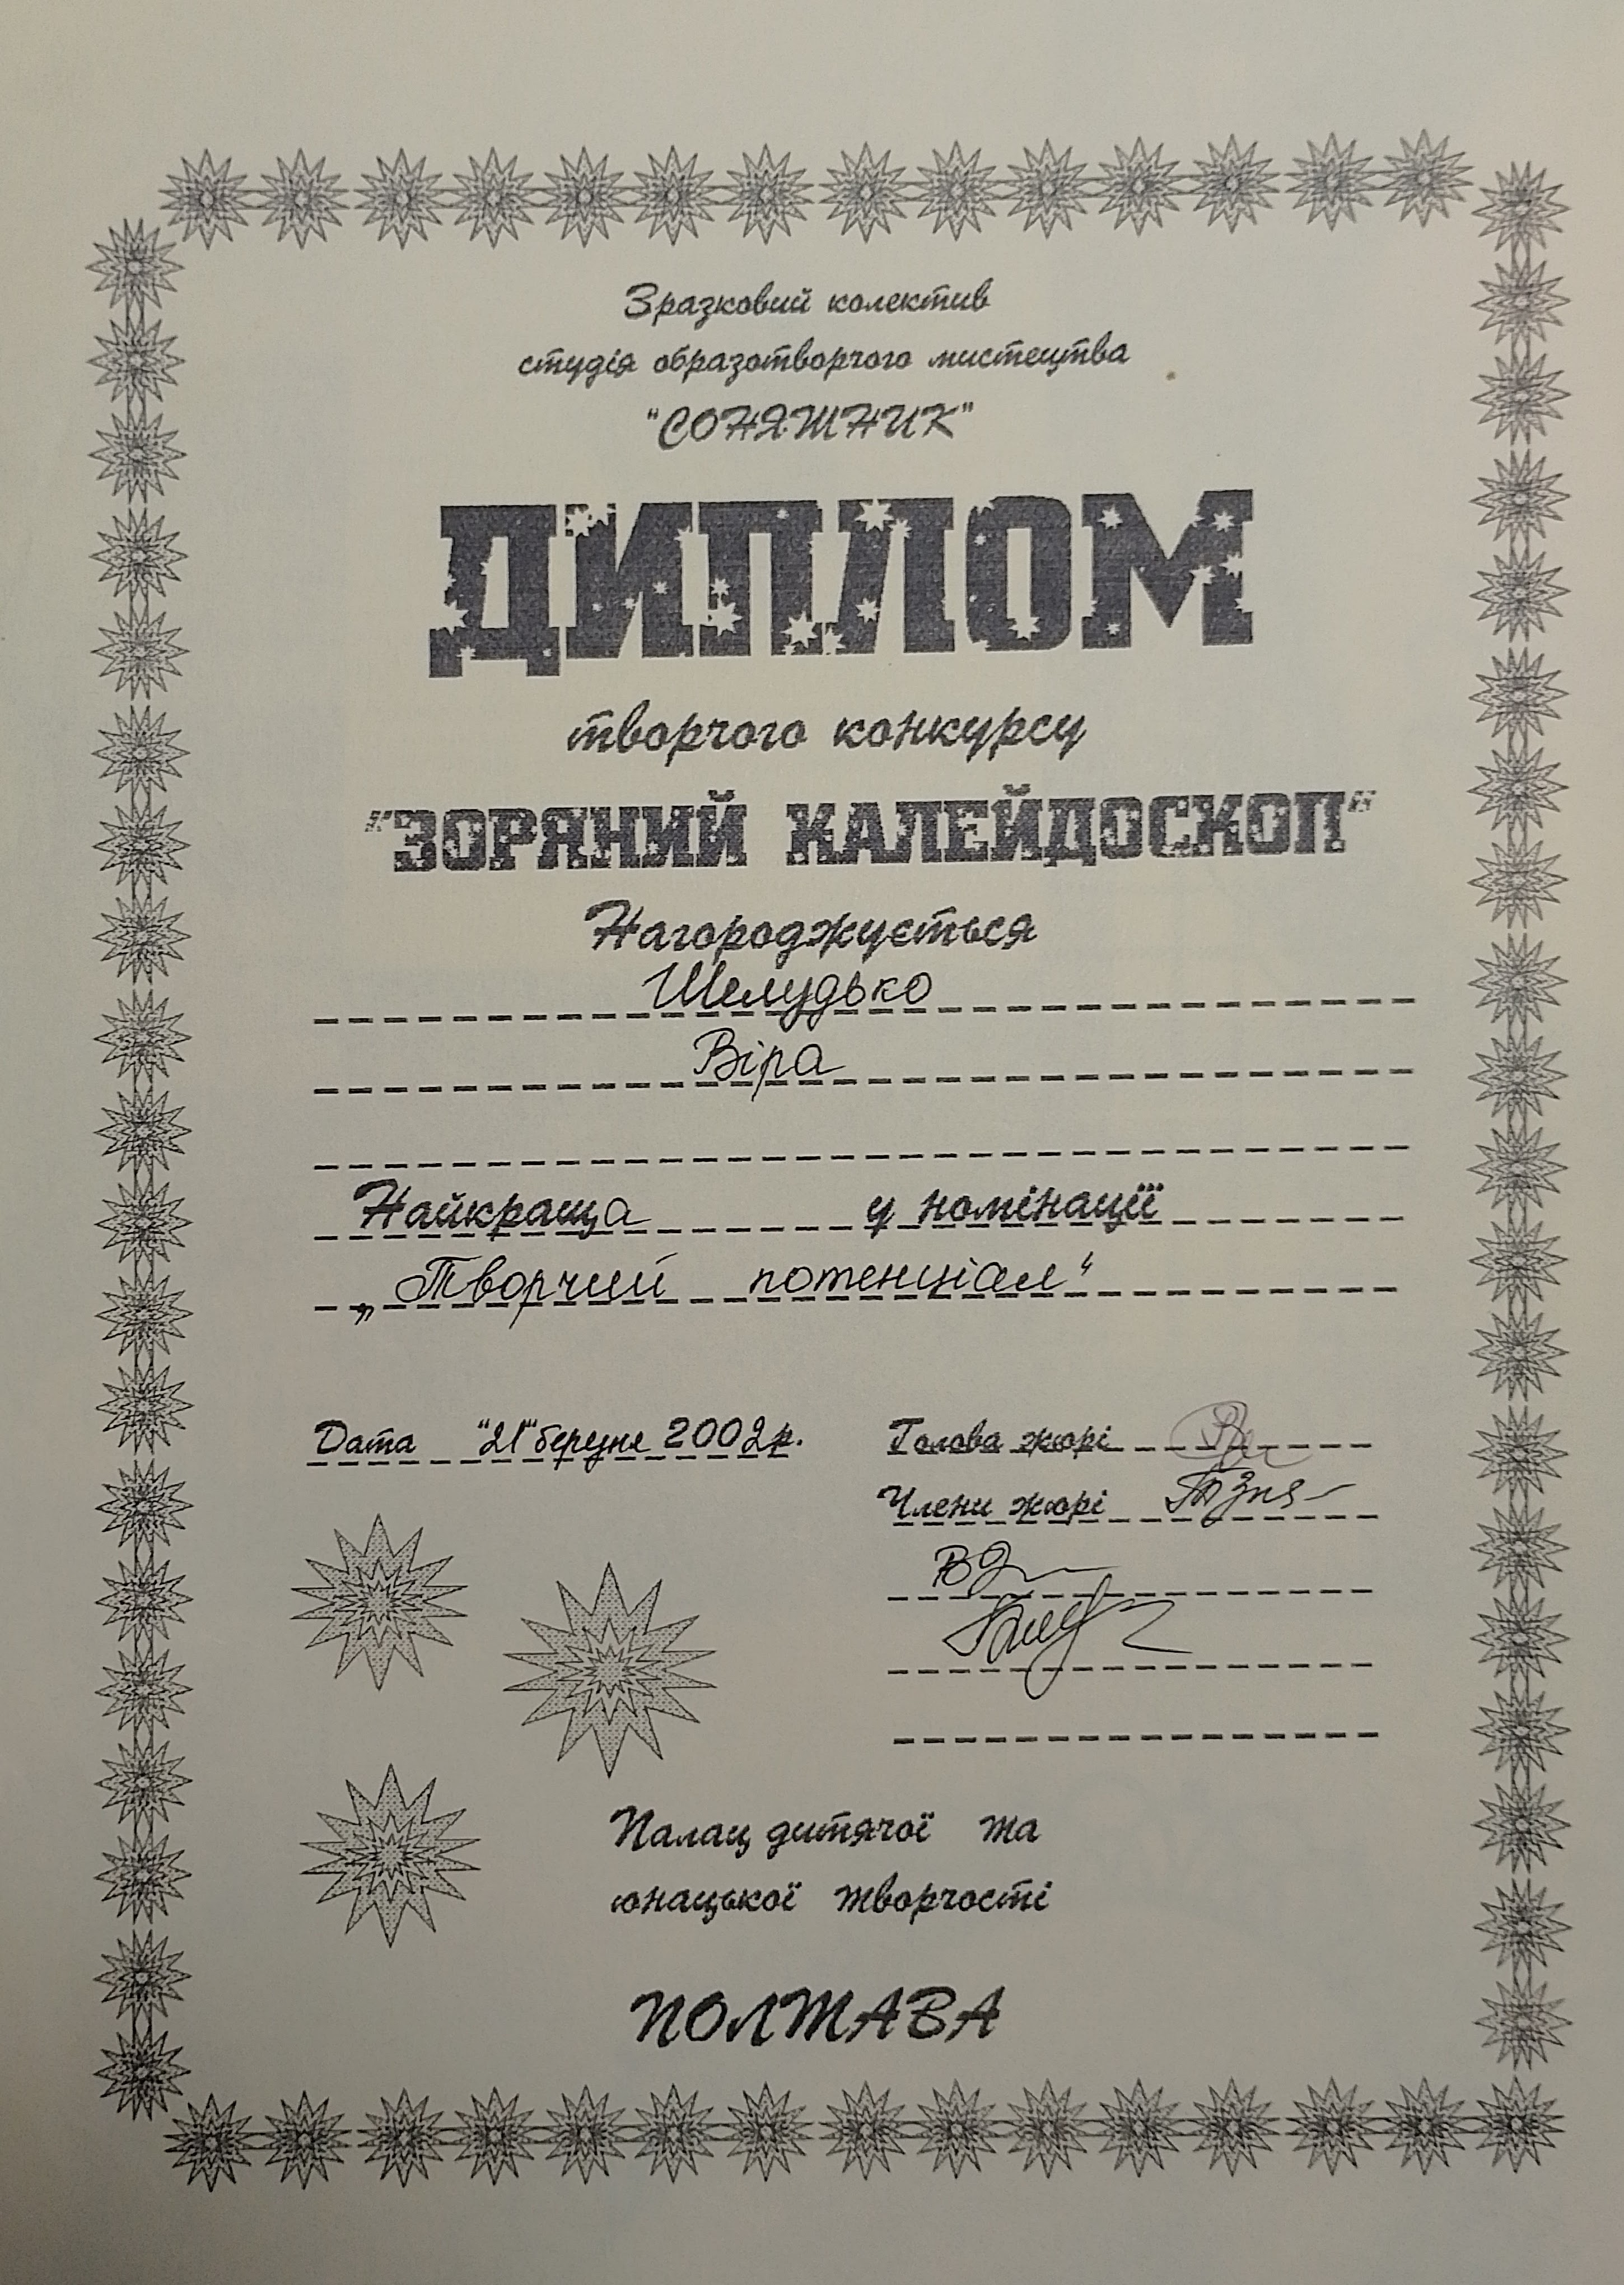 Зразковий колектив
студія образотворчого мистецтва
"СОНЯШНИК"
ДИПЛОМ
творчого конкурсу
"ЗОРЯНИЙ КАЛЕЙДОСКОП"
Нагороджується
Шелудько
Віра
Найкраща у номінації
„Творчий потенціал“
Дата "21" березня 2002р.
Голова журі
Члени журі
Палац дитячої та
юнацької творчості
ПОЛТАВА